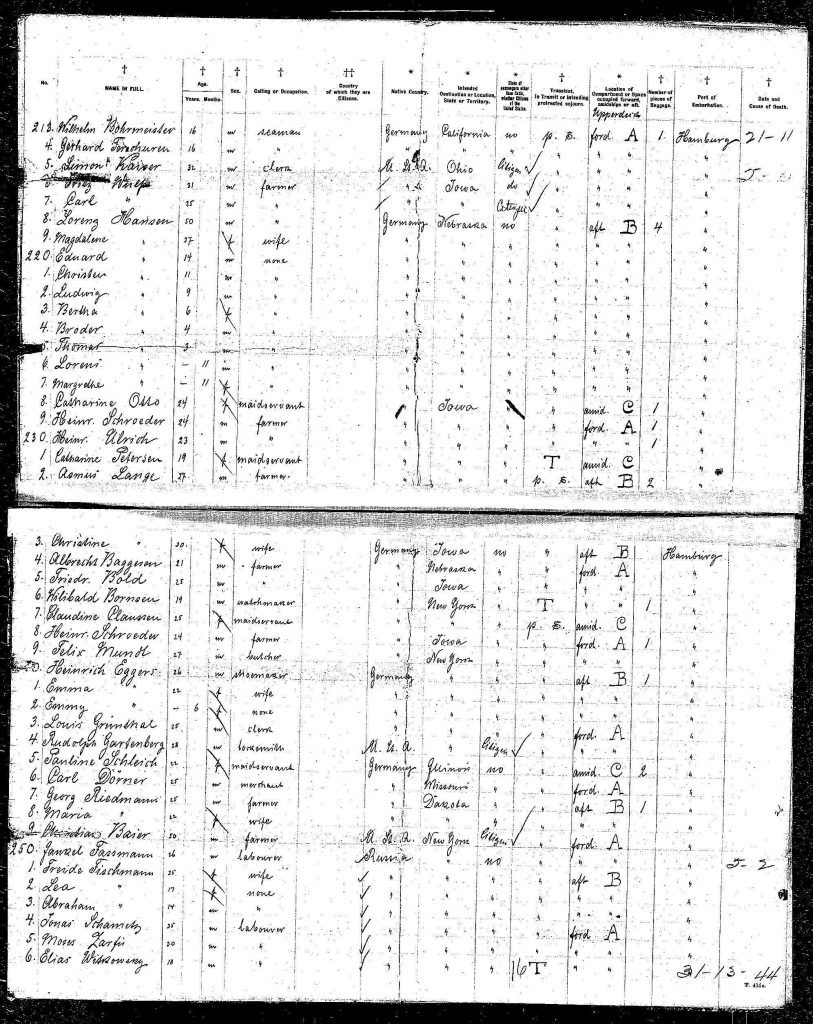 No. NAME IN FULL. Age. Years. Months. Sex. Calling or Occupation. Country of which they are Citizens. Native Country. Intended Destination or Location, State or Territory. State of passengers after Transient, In Transit or intending protracted sojourn. Location of Compartment or Space occupied forward, amidships or aft. Number of pieces of Baggage. Port of Embarkation. Date and Cause of Death.
Upperdeck
213. Wilhelm Bohrmeister 16 m seaman Germany California no p. s. ford A 1 Hamburg 21-11
4. Gerhard 16 m " " " " " "
5. Simon Kaiser 32 m clerk U. St. A. Ohio Citizen " " "
6. Fritz Wulf 31 m farmer " Iowa do " " "
7. Carl " 25 m " " " Citizen " " "
8. Lorenz Hansen 50 m " Germany Nebraska no " aft B 4 "
9. Magdalene " 37 f wife " " " " " "
220. Eduard " 14 m none " " " " " "
1. Christen " 11 m " " " " " " "
2. Ludwig " 9 m " " " " " " "
3. Bertha " 6 f " " " " " " "
4. Broder " 4 m " " " " " " "
5. Thomas " 3 m " " " " " " "
6. Lorens " - 11 m " " " " " " "
7. Margrethe " - 11 f " " " " " " "
8. Catharine Otto 24 f maidservant " Iowa " " amid. C 1 "
9. Heinr. Schroeder 24 m farmer " " " " ford. A 1 "
230. Heinr. Ulrich 23 m " " " " " " " 1 "
1. Catharine Petersen 19 f maidservant " " " T amid. C "
2. Asmus Lange 27 m farmer " " " p. s. aft B 2 "
3. Christine " 30 f wife Germany Iowa no " aft B Hamburg
4. Albrecht Baggesen 21 m farmer " Nebraska " ford. A "
5. Friedr. Bold 25 m " " Iowa " " " "
6. Wilibald Bornsen 19 m watchmaker " New York T " " 1 "
7. Claudine Claussen 25 f maidservant " " p. s. amid. C "
8. Heinr. Schroeder 24 m farmer " Iowa " ford. A 1 "
9. Felix Mundt 27 m butcher " New York " " " "
Heinrich Eggers 26 m shoemaker Germany " " " aft B 1 "
1. Emma " 22 f wife " " " " " "
2. Emmy " - 6 f none " " " " " "
3. Louis Grünthal 25 m clerk " " " " ford. A "
4. Rudolph Gartenberg 28 m U. S. A. " Citizen " " " "
5. Pauline Schleich 22 f maidservant Germany Illinois no " amid. C 2 "
6. Carl Dörner 25 m merchant " Missouri " " ford. A "
7. Georg Riedmann 25 m farmer " Dakota " " aft B 1 "
8. Maria " 22 f wife " " " " " "
9. Christian Baier 50 m farmer U. St. A. New York Citizen " ford. A "
250. Jankel Fassmann 26 m labourer Russia " no " " " "
1. Freide Fischmann 25 f wife " " " aft B "
2. Lea " 17 f none " " " " " "
3. Abraham " 14 m " " " " " " "
4. Jonas 25 m labourer " " " ford. A "
5. Moses 20 m " " " " " " "
6. Elias 18 m " " " 16 T " " "
31-13-44